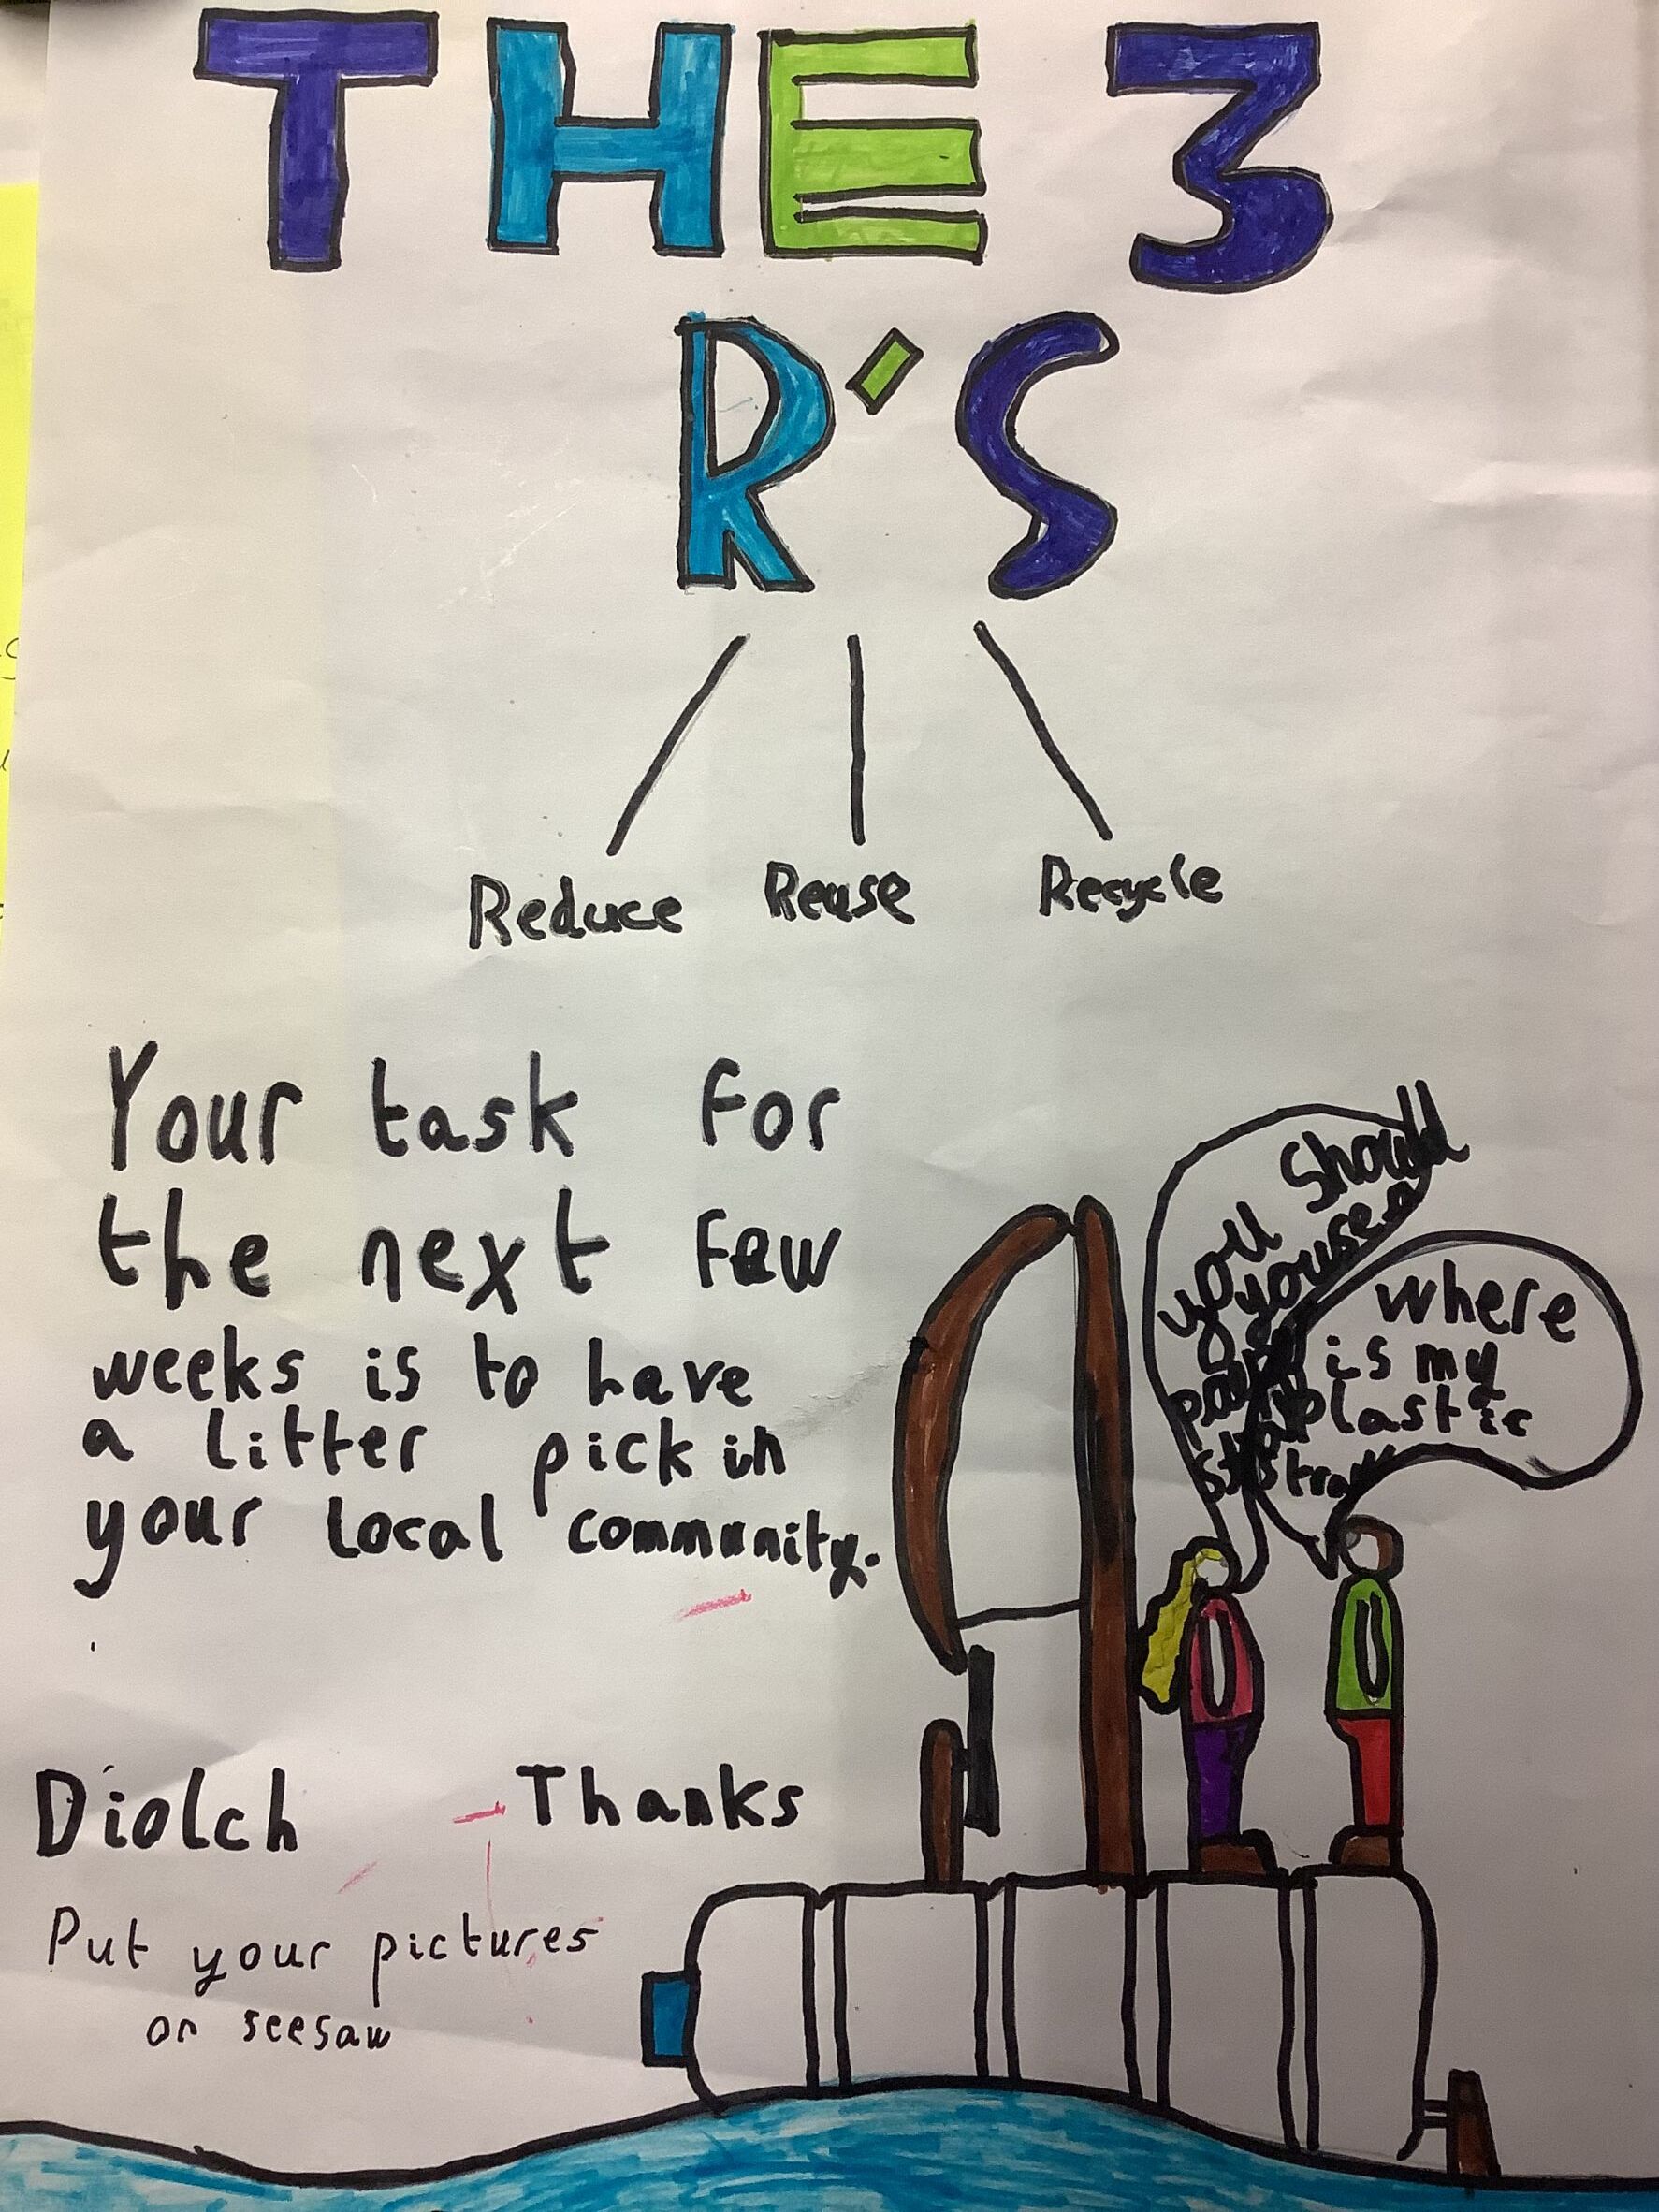 THE 3
R'S
Reduce Reuse Recycle
Your task for
the next few
weeks is to have
a litter pick in
your local community.
you should
youse a
paper
straw
where
is my
plastic
straw
Diolch - Thanks
Put your pictures
on seesaw